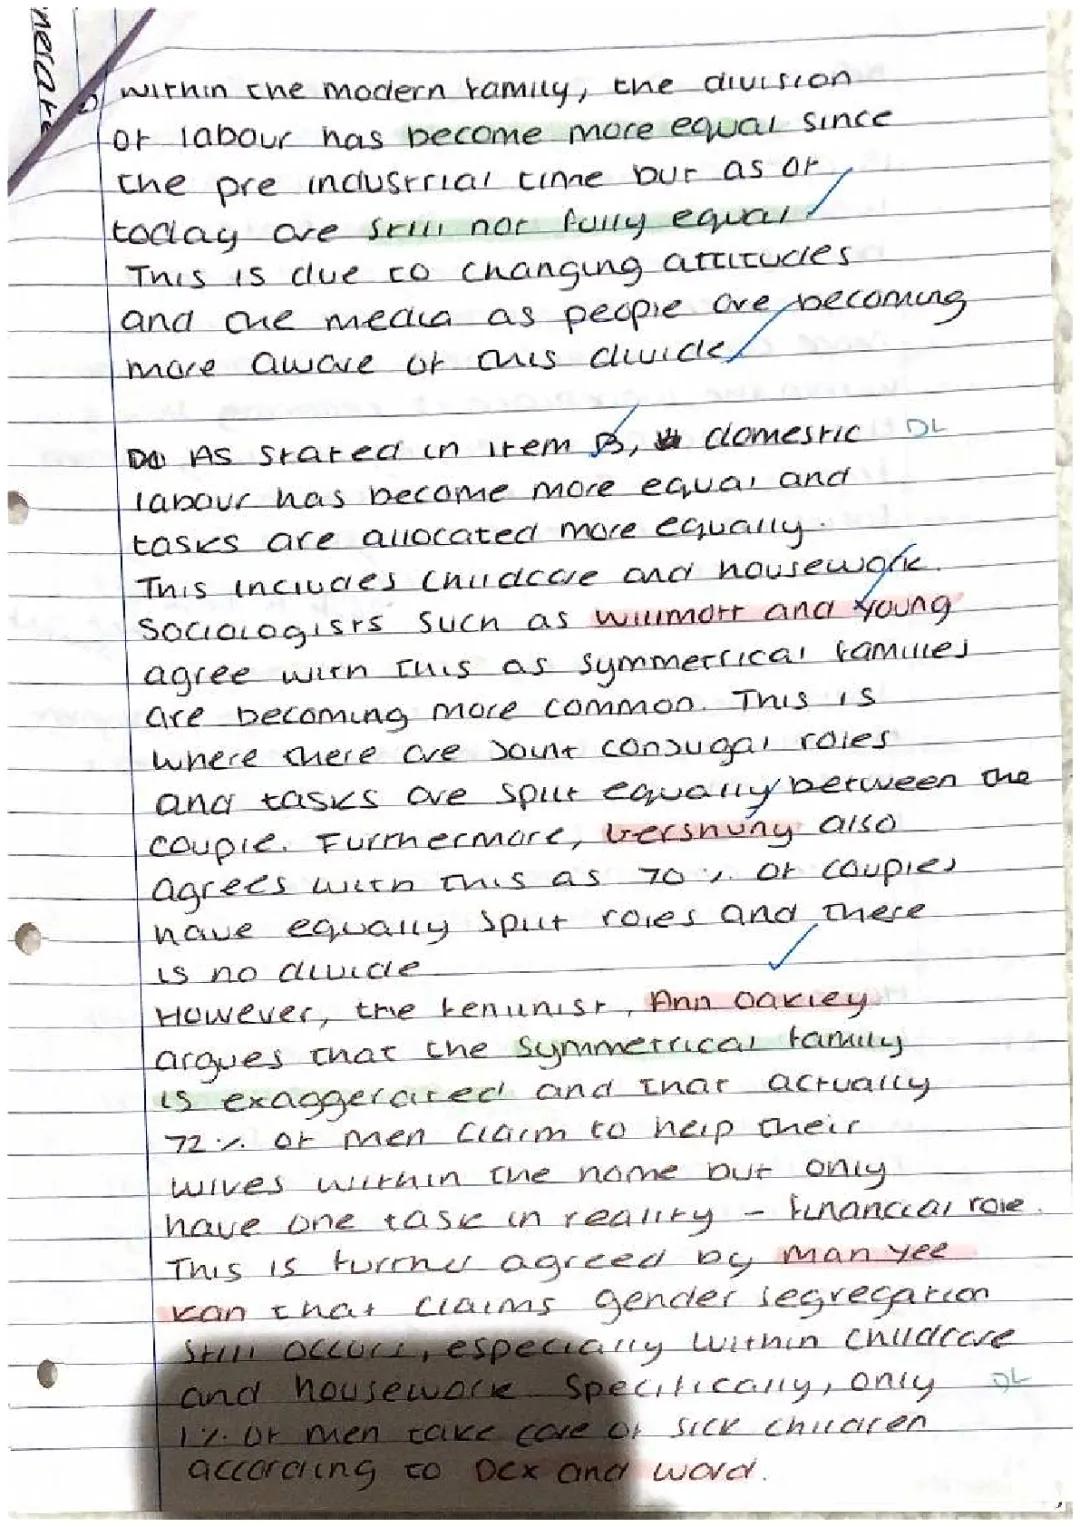 within the modern family, the division
of labour has become more equal since
the pre industrial time but as of
today are still not fully equal.
This is due to changing attitudes
and the media as people are becoming
more aware of this divide.
As stated in item B, domestic DL
labour has become more equal and
tasks are allocated more equally.
This includes childcare and housework.
Sociologists such as Willmott and Young
agree with this as symmetrical families
are becoming more common. This is
where there are joint conjugal roles
and tasks are split equally between the
couple. Furthermore, Gershuny also
agrees with this as 70% of couples
have equally split roles and there
is no divide
However, the feminist, Ann Oakley
argues that the symmetrical family
is exaggerated and that actually
72% of men claim to help their
wives within the home but only
have one task in reality - financial role.
This is further agreed by Man Yee
Kan that claims gender segregation
still occurs, especially within childcare
and housework. Specifically, only DL
1% of men take care of sick children
according to Dex and Ward.